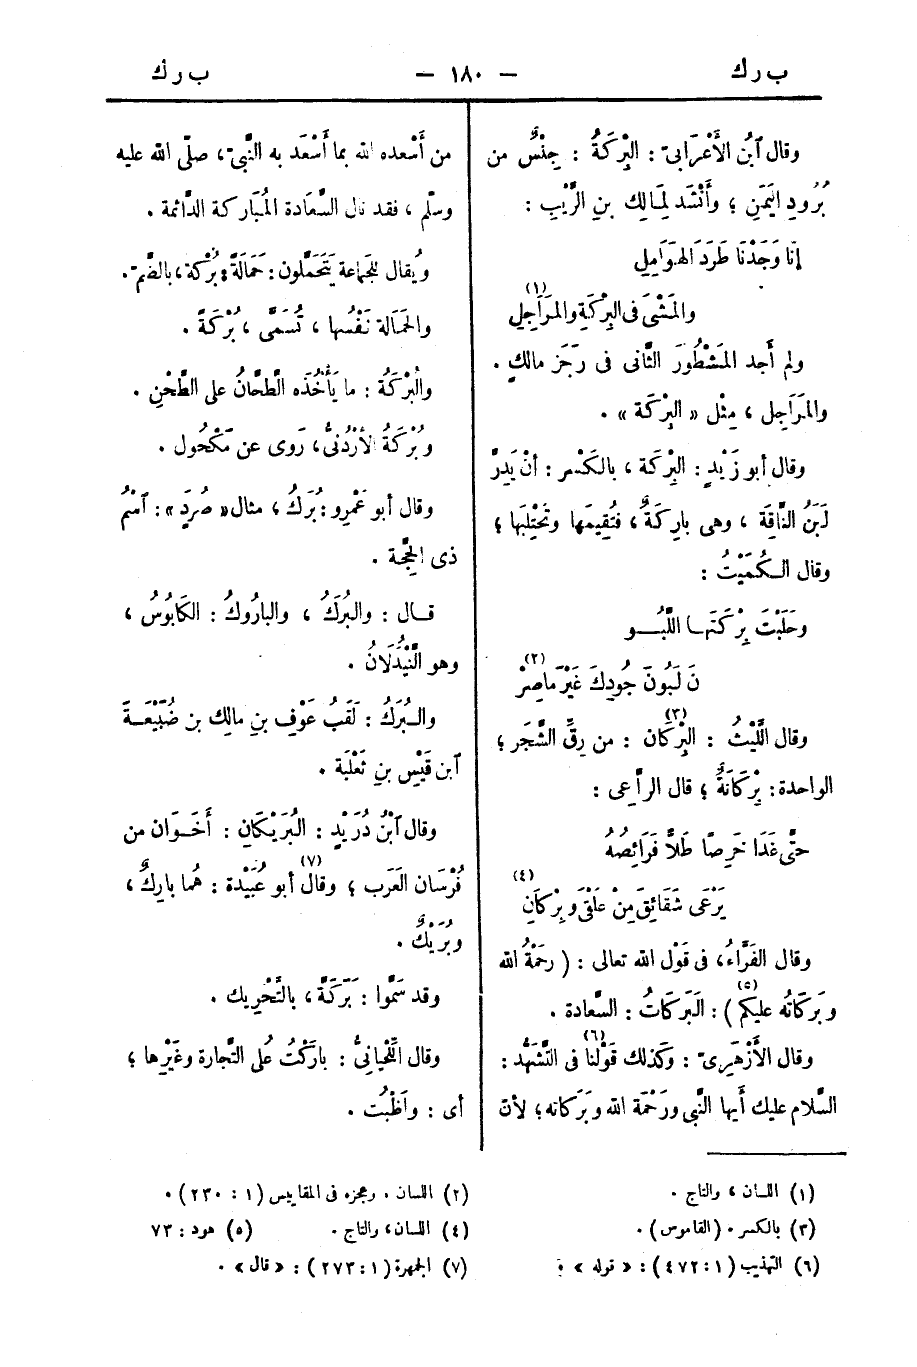 ب رك — ١٨٠ — ب رك
وقال ٱبنُ الأَعْرابيّ : البِرْكَةُ : جِنْسٌ من
بُرُودِ اليَمَنِ ؛ وأَنْشَد لِمَالِك بنِ الرَّيْبِ :
إنّا وَجَدْنَا طَرَدَ الهَوَامِلِ
والمَشْىَ فى البِرْكَةِ والمَرَاجِلِ (١)
ولم أَجد المَشْطُورَ الثّانى فى رَجَز مالكٍ .
والمَرَاجل ، مِثْل « البِرْكَة » .
وقال أبو زَيْدٍ : البِرْكَة ، بالكَسْر : أنْ يَدِرَّ
لَبَنُ النَّاقَة ، وهى بارِكَةٌ ، فتُقِيمَها وتَحْتَلِبَها ؛
وقال الكُمَيْتُ :
وحَلَبْتَ بِرْكَتَهـا اللَّبُـــو
نَ لَبُونَ جُودِكَ غَيْرَ مَاصِرْ (٢)
وقال اللَّيْثُ : البِرْكان (٣) : من رِقِّ الشَّجَر ؛
الواحدة : بِرْكَانَةٌ ؛ قال الرّاعِى :
حتَّى غَدَا خَرِصًا طَلًّا فَرَائِصُهُ
يَرْعَى شَقَائِقَ مِنْ عَلْقَى وبِرْكَانِ (٤)
وقال الفَرَّاءُ، فى قَوْل الله تعالى : ( رحَمْةُ الله
وبَرَكاتُه عليكم (٥) ) : البَرَكَاتُ : السَّعادة .
وقال الأَزْهَرِىّ : وكَذلك قَوْلُنا (٦) فى التَّشَهُّد :
السَّلام عليك أَيها النَّبى ورَحْمَة الله وبَرَكاته ؛ لأنّ
من أَسْعده الله بما أَسْعَد به النَّبىّ، صلّى الله عليه
وسلّم ، فقد نال السَّعَادة المُبَارَكة الدَّائمة .
ويُقال للجَماعة يَتَحَمَّلون : حَمَالَةٌ : بُرْكَة ، بالضَّمّ .
والحَمَالَة نَفْسُها ، تُسَمَّى ، بُرْكَةً .
والبُرْكَةُ : ما يَأْخُذه الطَّحّانُ على الطَّحْنِ .
وبُرْكَةُ الأُرْدُنىُّ، رَوى عن مَكْحُول .
وقال أبو عَمْرِو : بُرَكُ ، مثال « صُرَدٍ » : ٱسْمُ
ذى الحِجَّة .
قـال : والبُرَكُ ، والبارُوكُ : الكَابُوسُ ،
وهو النَّيْدُلَانُ .
والـبُرَكُ : لَقَبُ عَوْفِ بنِ مالِك بن ضُبَيْعَــةَ
ٱبن قَيْسِ بنِ ثَعْلبَة .
وقال ٱبْنُ دُرَيْدٍ : البُرَيْكَانِ : أَخَـوَان من
فُرْسَان العَرَب (٧) ؛ وقال أبو عُبَيْدة : هُما بارِكٌ ،
وبُرَيْكٌ .
وقد سَمَّوا : بَرَكَةً ، بالتَّحْرِيك .
وقال اللِّحْيانىُّ : بارَكْتُ على التِّجارة وغَيْرِها ؛
أى : واَظَبْت .
(١) اللسان ، والتاج .
(٢) اللسان . وعجزه فى المقاييس (١ : ٢٣٠) .
(٣) بالكسر . (القاموس) .
(٤) اللسان، والتاج . (٥) هود : ٧٣
(٦) التهذيب (١ : ٤٧٢) : « قوله » .
(٧) الجمهرة (١ : ٢٧٣) : « قال » .